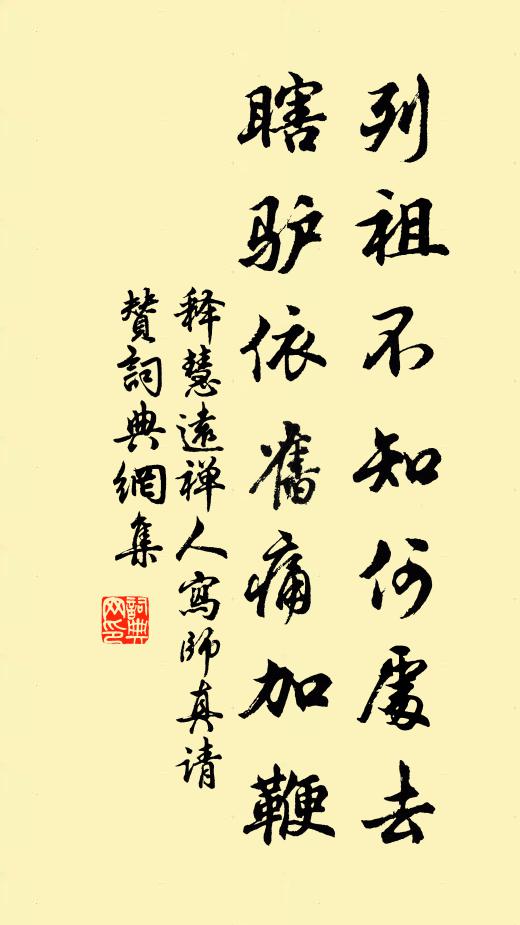 列祖不知何處去
瞎驴依舊痛加鞭
释慧遠禅人寫師真请
贊詞典網集
詞典
网印